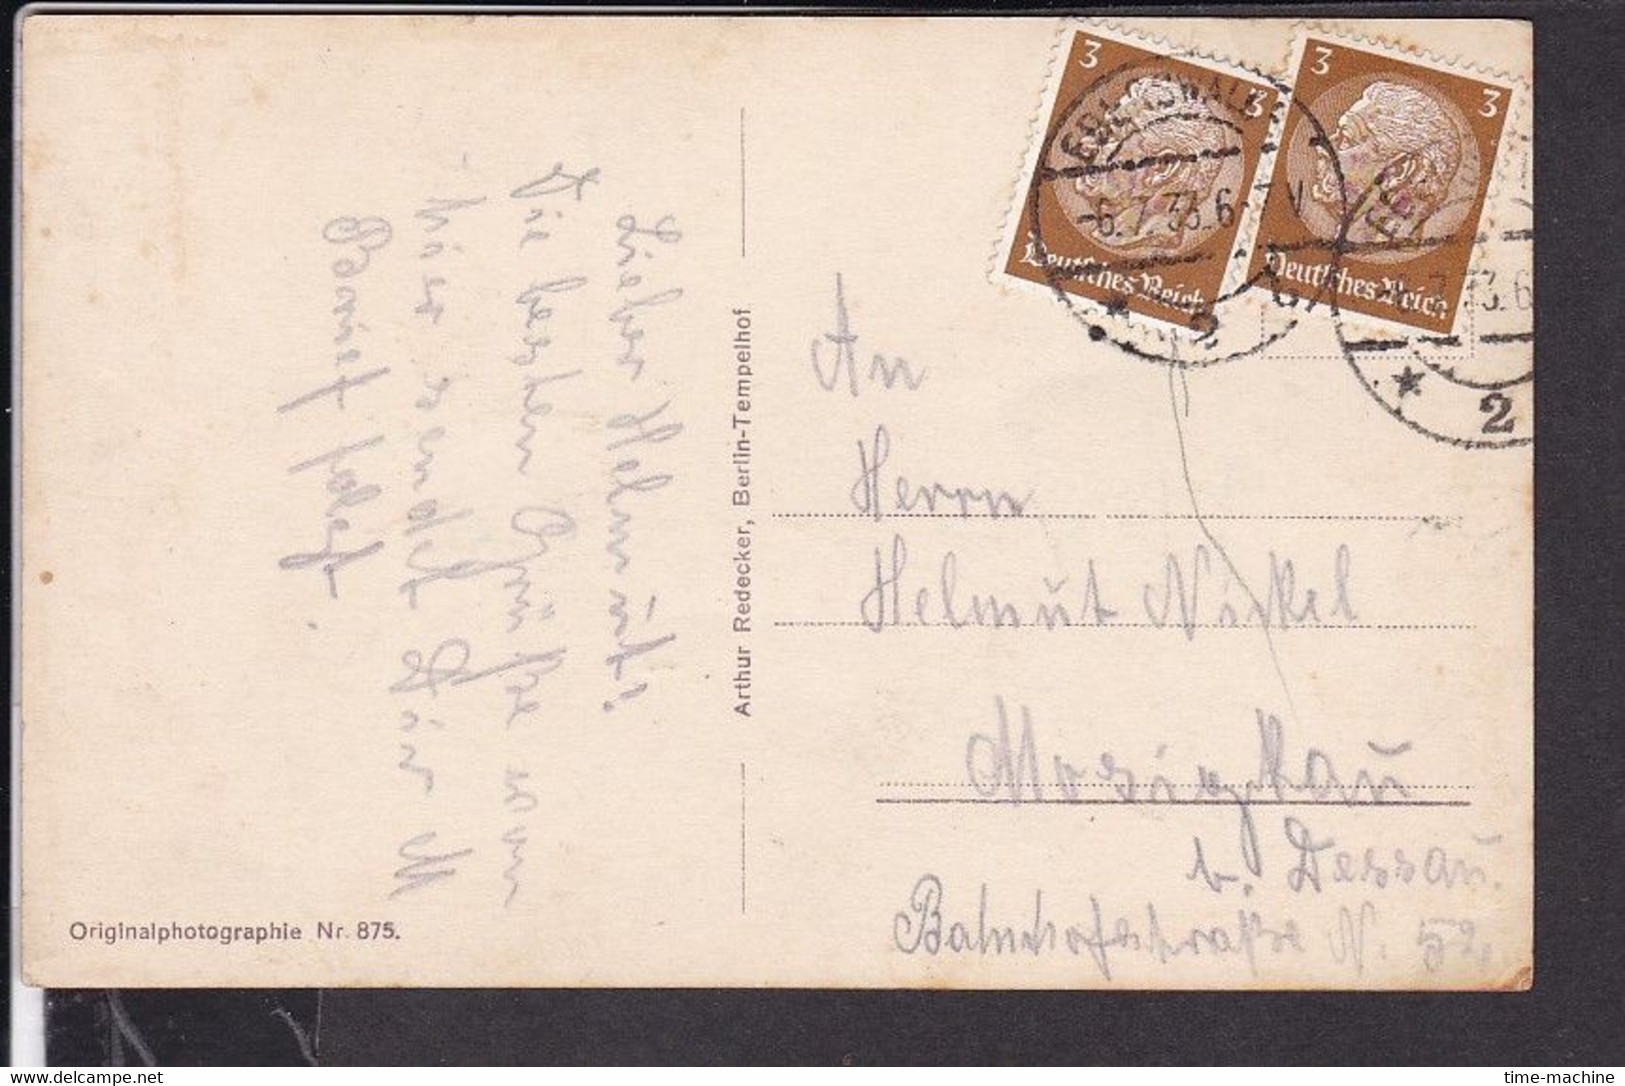 Lieber Helmut!
Die besten Grüße von
hier sendet Dir
An
Herrn
Helmut Nickel
Mosigkau
b. Dessau.
Bahnhofstraße N. 52.
Arthur Redecker, Berlin-Tempelhof
Originalphotographie Nr. 875.
3 3
Deutsches Reich
3 3
Deutsches Reich
EBERSWALDE
-6.7.33.6-
2
33.6
2
www.delcampe.net
time-machine